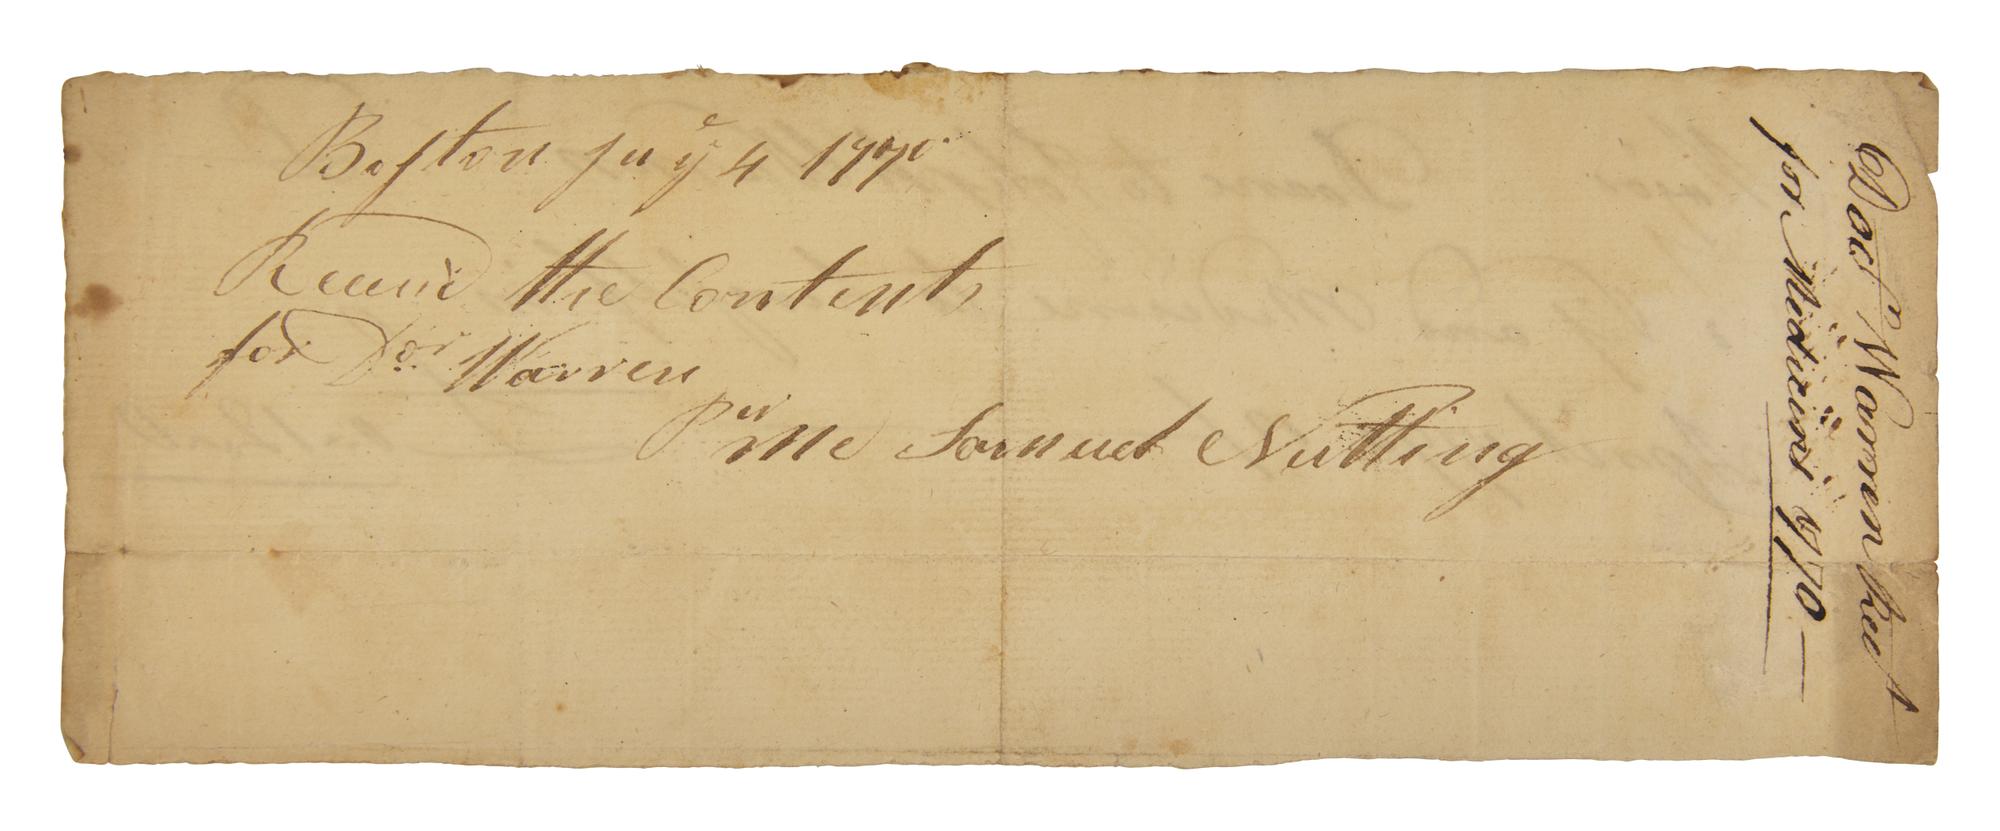 Boston Juy yᵉ 4 1770
Receivd the Contents
for Dor Warren
Pʳ me Samuel Nutting
Docʳ Warren Recᵗ
for Medicins 1770